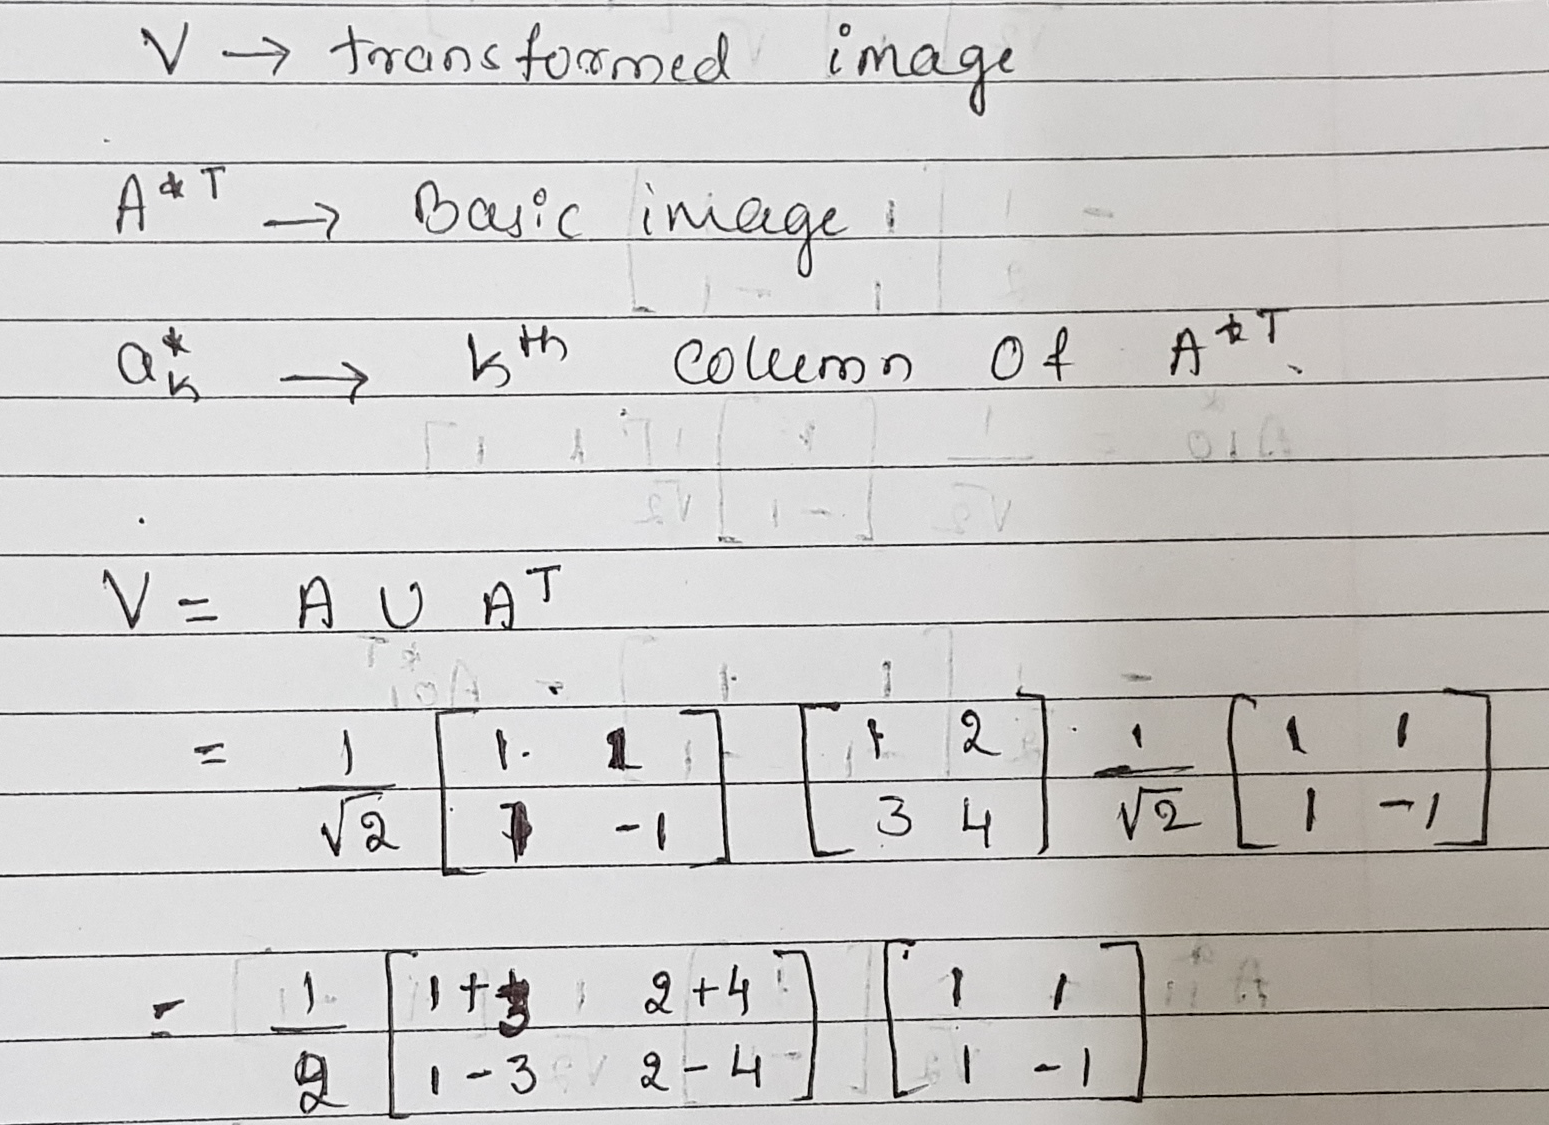 V → transformed image
A*T → Basic image
a*k → kth column of A*T.
V = A U AT
= 1/√2 [1 1; 1 -1] [1 2; 3 4] 1/√2 [1 1; 1 -1]
= 1/2 [1+3 2+4; 1-3 2-4] [1 1; 1 -1]